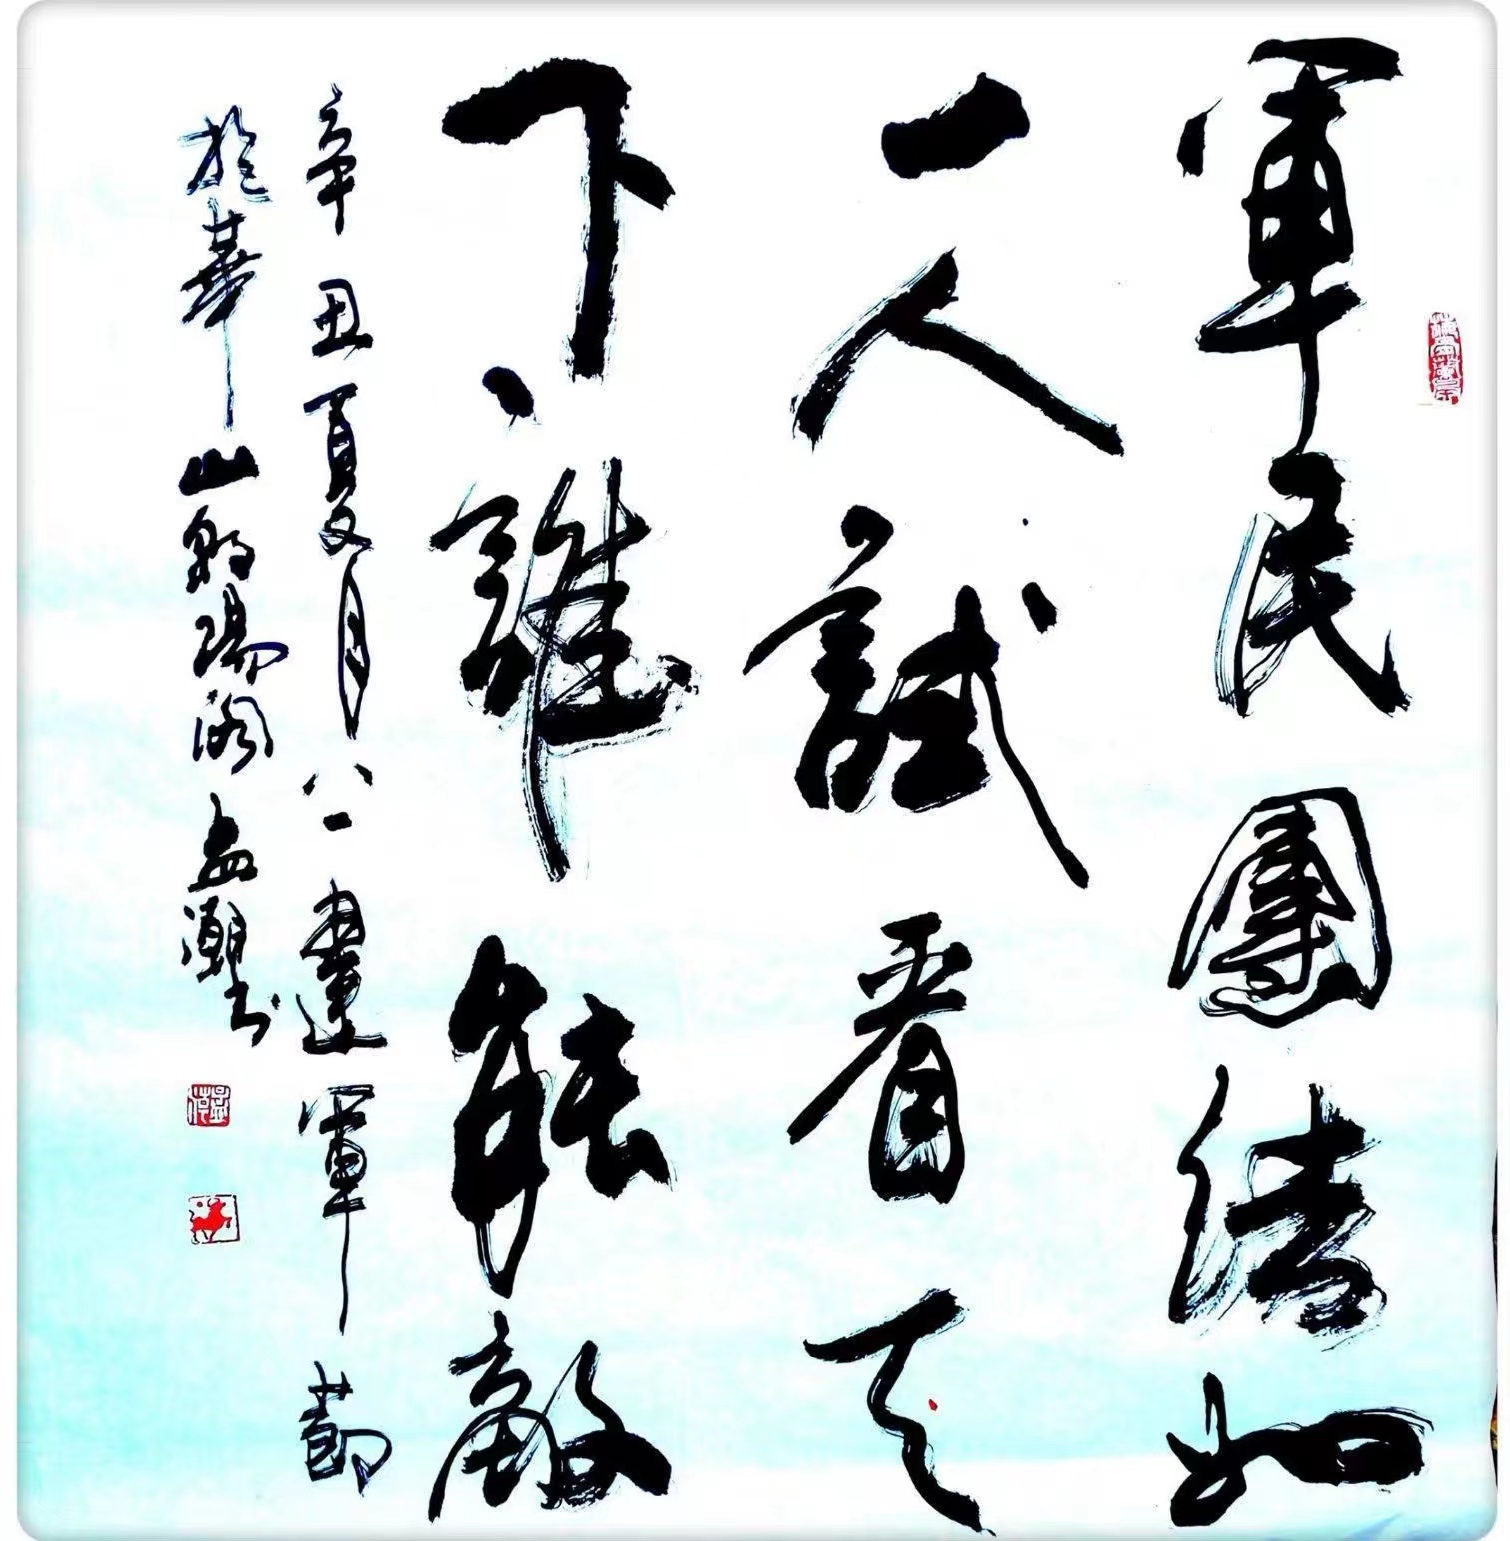 軍民團結如
一人試看天
下誰能敵
辛丑夏月八一建軍節
於華山朝陽閣孟潮书